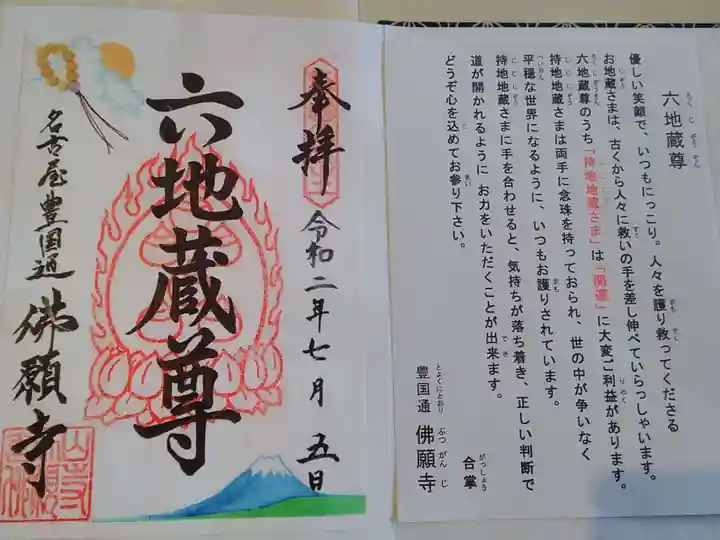 奉拝
令和二年七月五日
六地蔵尊
名古屋豊国通
佛願寺
六地蔵尊
ろくじぞうそん
優しい笑顔で、いつもにっこり。人々を護り救ってくださる
お地蔵さまは、古くから人々に救いの手を差し伸べていらっしゃいます。
六地蔵尊のうち「持地地蔵さま」は「開運」に大変ご利益があります。
持地地蔵さまは両手に念珠を持っておられ、世の中が争いなく
平穏な世界になるように、いつもお護りされています。
持地地蔵さまに手を合わせると、気持ちが落ち着き、正しい判断で
道が開かれるように お力をいただくことが出来ます。
どうぞ心を込めてお参り下さい。
合掌
がっしょう
豊国通 佛願寺
とよくにとおり ぶつがんじ